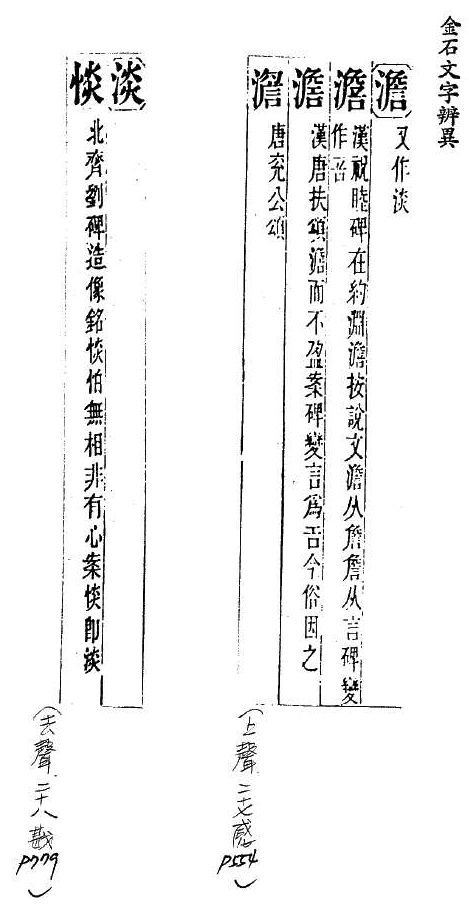 金石文字辨異
澹 又作淡
澹 漢祝睦碑在約淵澹按說文澹从詹詹从言碑變作𠮷
澹 漢唐扶頌澹而不盈案碑變言爲𠮷今俗因之
澹 唐兖公頌
(上聲二十七感 P554)
淡
惔 北齊劉碑造像銘惔怕無相非有心案惔即淡
(去聲二十八勘 P779)